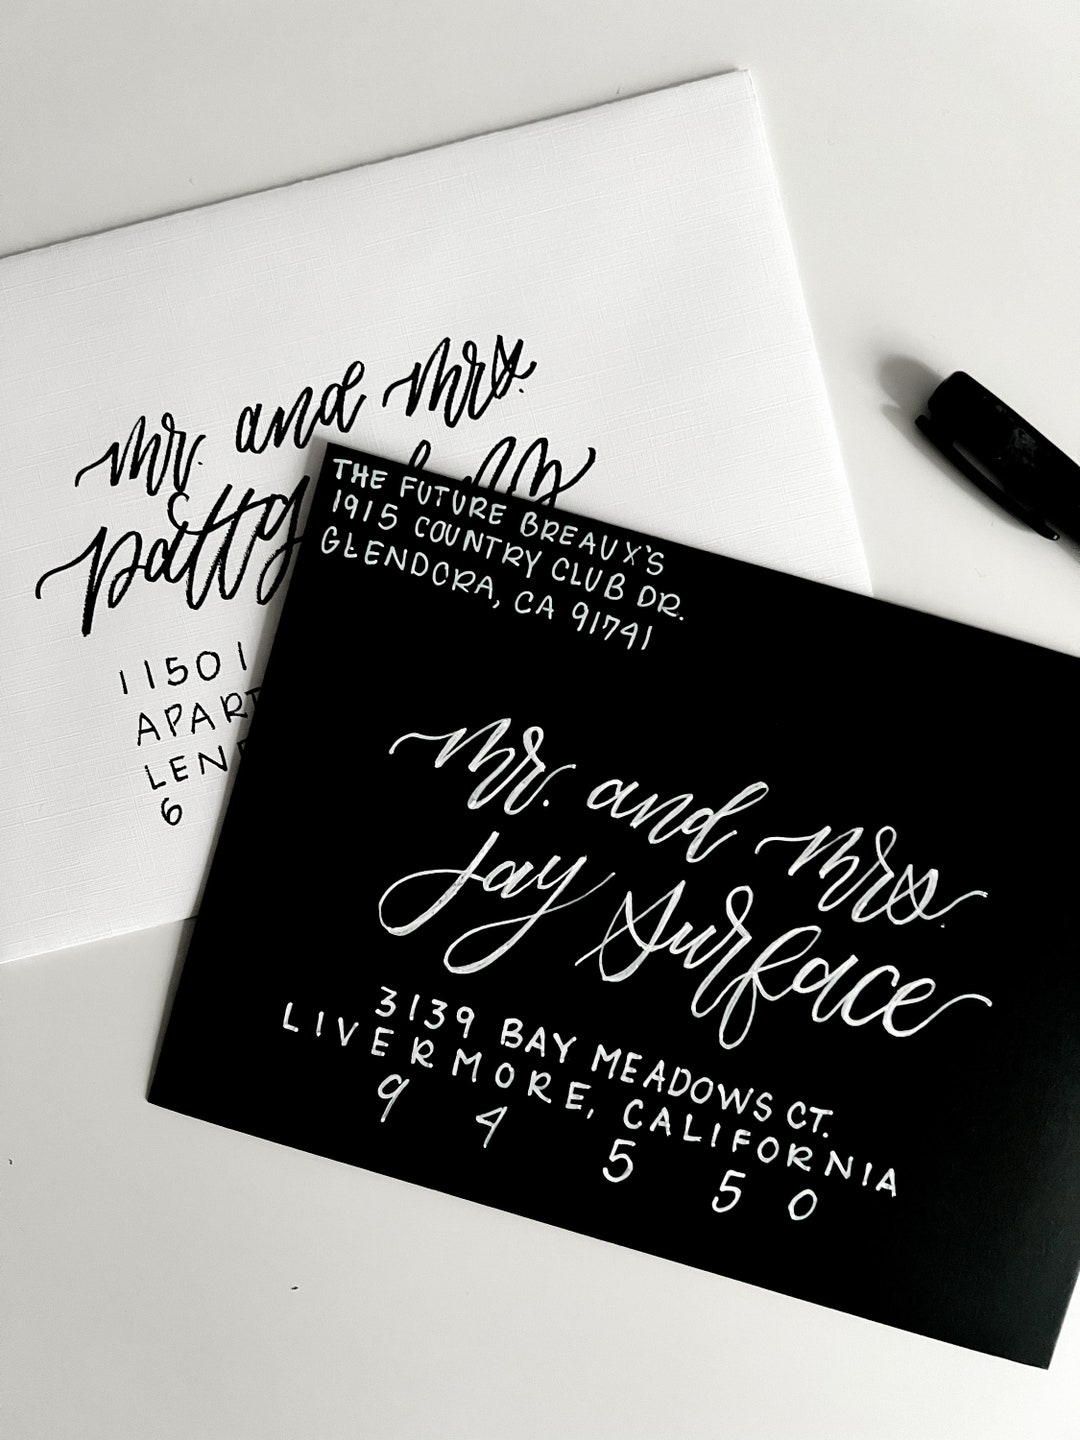 mr. and mrs.
patty
11501
APART
LEN
6
THE FUTURE BREAUX'S
1915 COUNTRY CLUB DR.
GLENDORA, CA 91741
mr. and mrs.
Jay Surface
3139 BAY MEADOWS CT.
LIVERMORE, CALIFORNIA
9 4 5 5 0